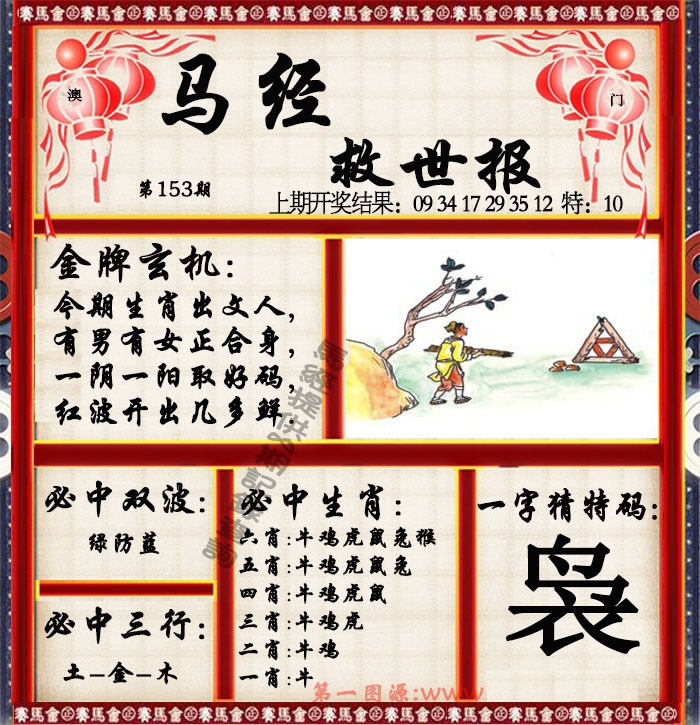 賽馬會 賽馬會 賽馬會 賽馬會 賽馬會 賽馬會 賽馬會 賽馬會
澳
门
马经
救世报
第153期
上期开奖结果：09 34 17 29 35 12 特：10
金牌玄机：
今期生肖出文人，
有男有女正合身，
一阴一阳取好码，
红波开出几多鲜．
必中双波：
绿防蓝
必中三行：
土-金-木
必中生肖：
六肖：牛鸡虎鼠兔猴
五肖：牛鸡虎鼠兔
四肖：牛鸡虎鼠
三肖：牛鸡虎
二肖：牛鸡
一肖：牛
一字猜特码：
袅
第一图源：www